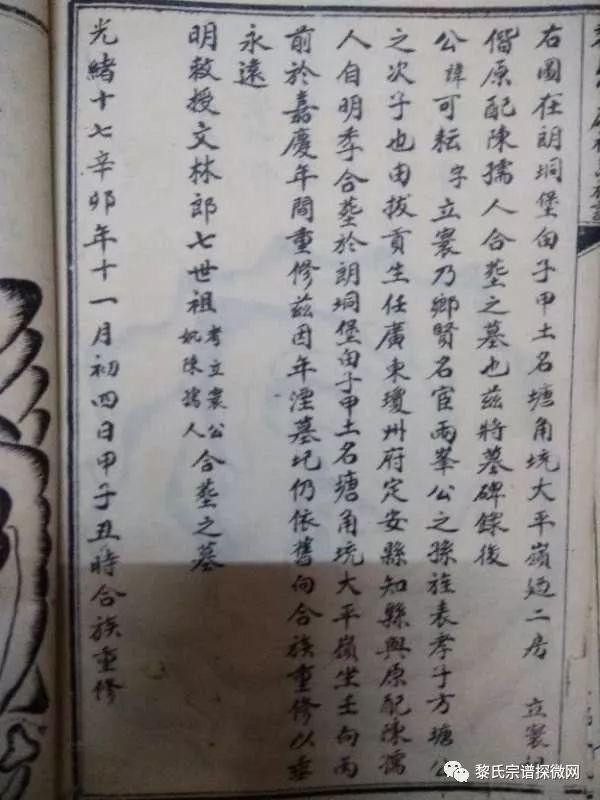 右圖在朗垌堡白子甲土名塘角坑大平嶺廼二房 立寰
偕原配陳孺人合塟之墓也茲將墓碑錄後
公諱可耘字立寰乃鄉賢名宦兩峯公之孫旌表孝子方塘公
之次子也由拔貢生任廣東瓊州府定安縣知縣與原配陳孺
人自明季合塟於朗垌堡白子甲土名塘角坑大平嶺坐壬向丙
前於嘉慶年間重修茲因年湮墓圮仍依舊向合族重修以垂
永遠
明敕授文林郎七世祖考立寰公妣陳孺人合塟之墓
光緒十七辛卯年十一月初四日甲子丑時合族重修
黎氏宗谱探微网